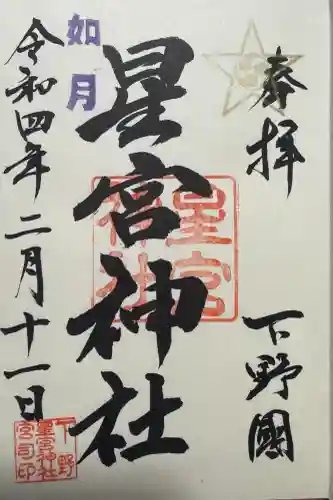 奉拝
下野國
星宮神社
星宮
神社
如月
令和四年二月十一日
下野
星宮神社
宮司印